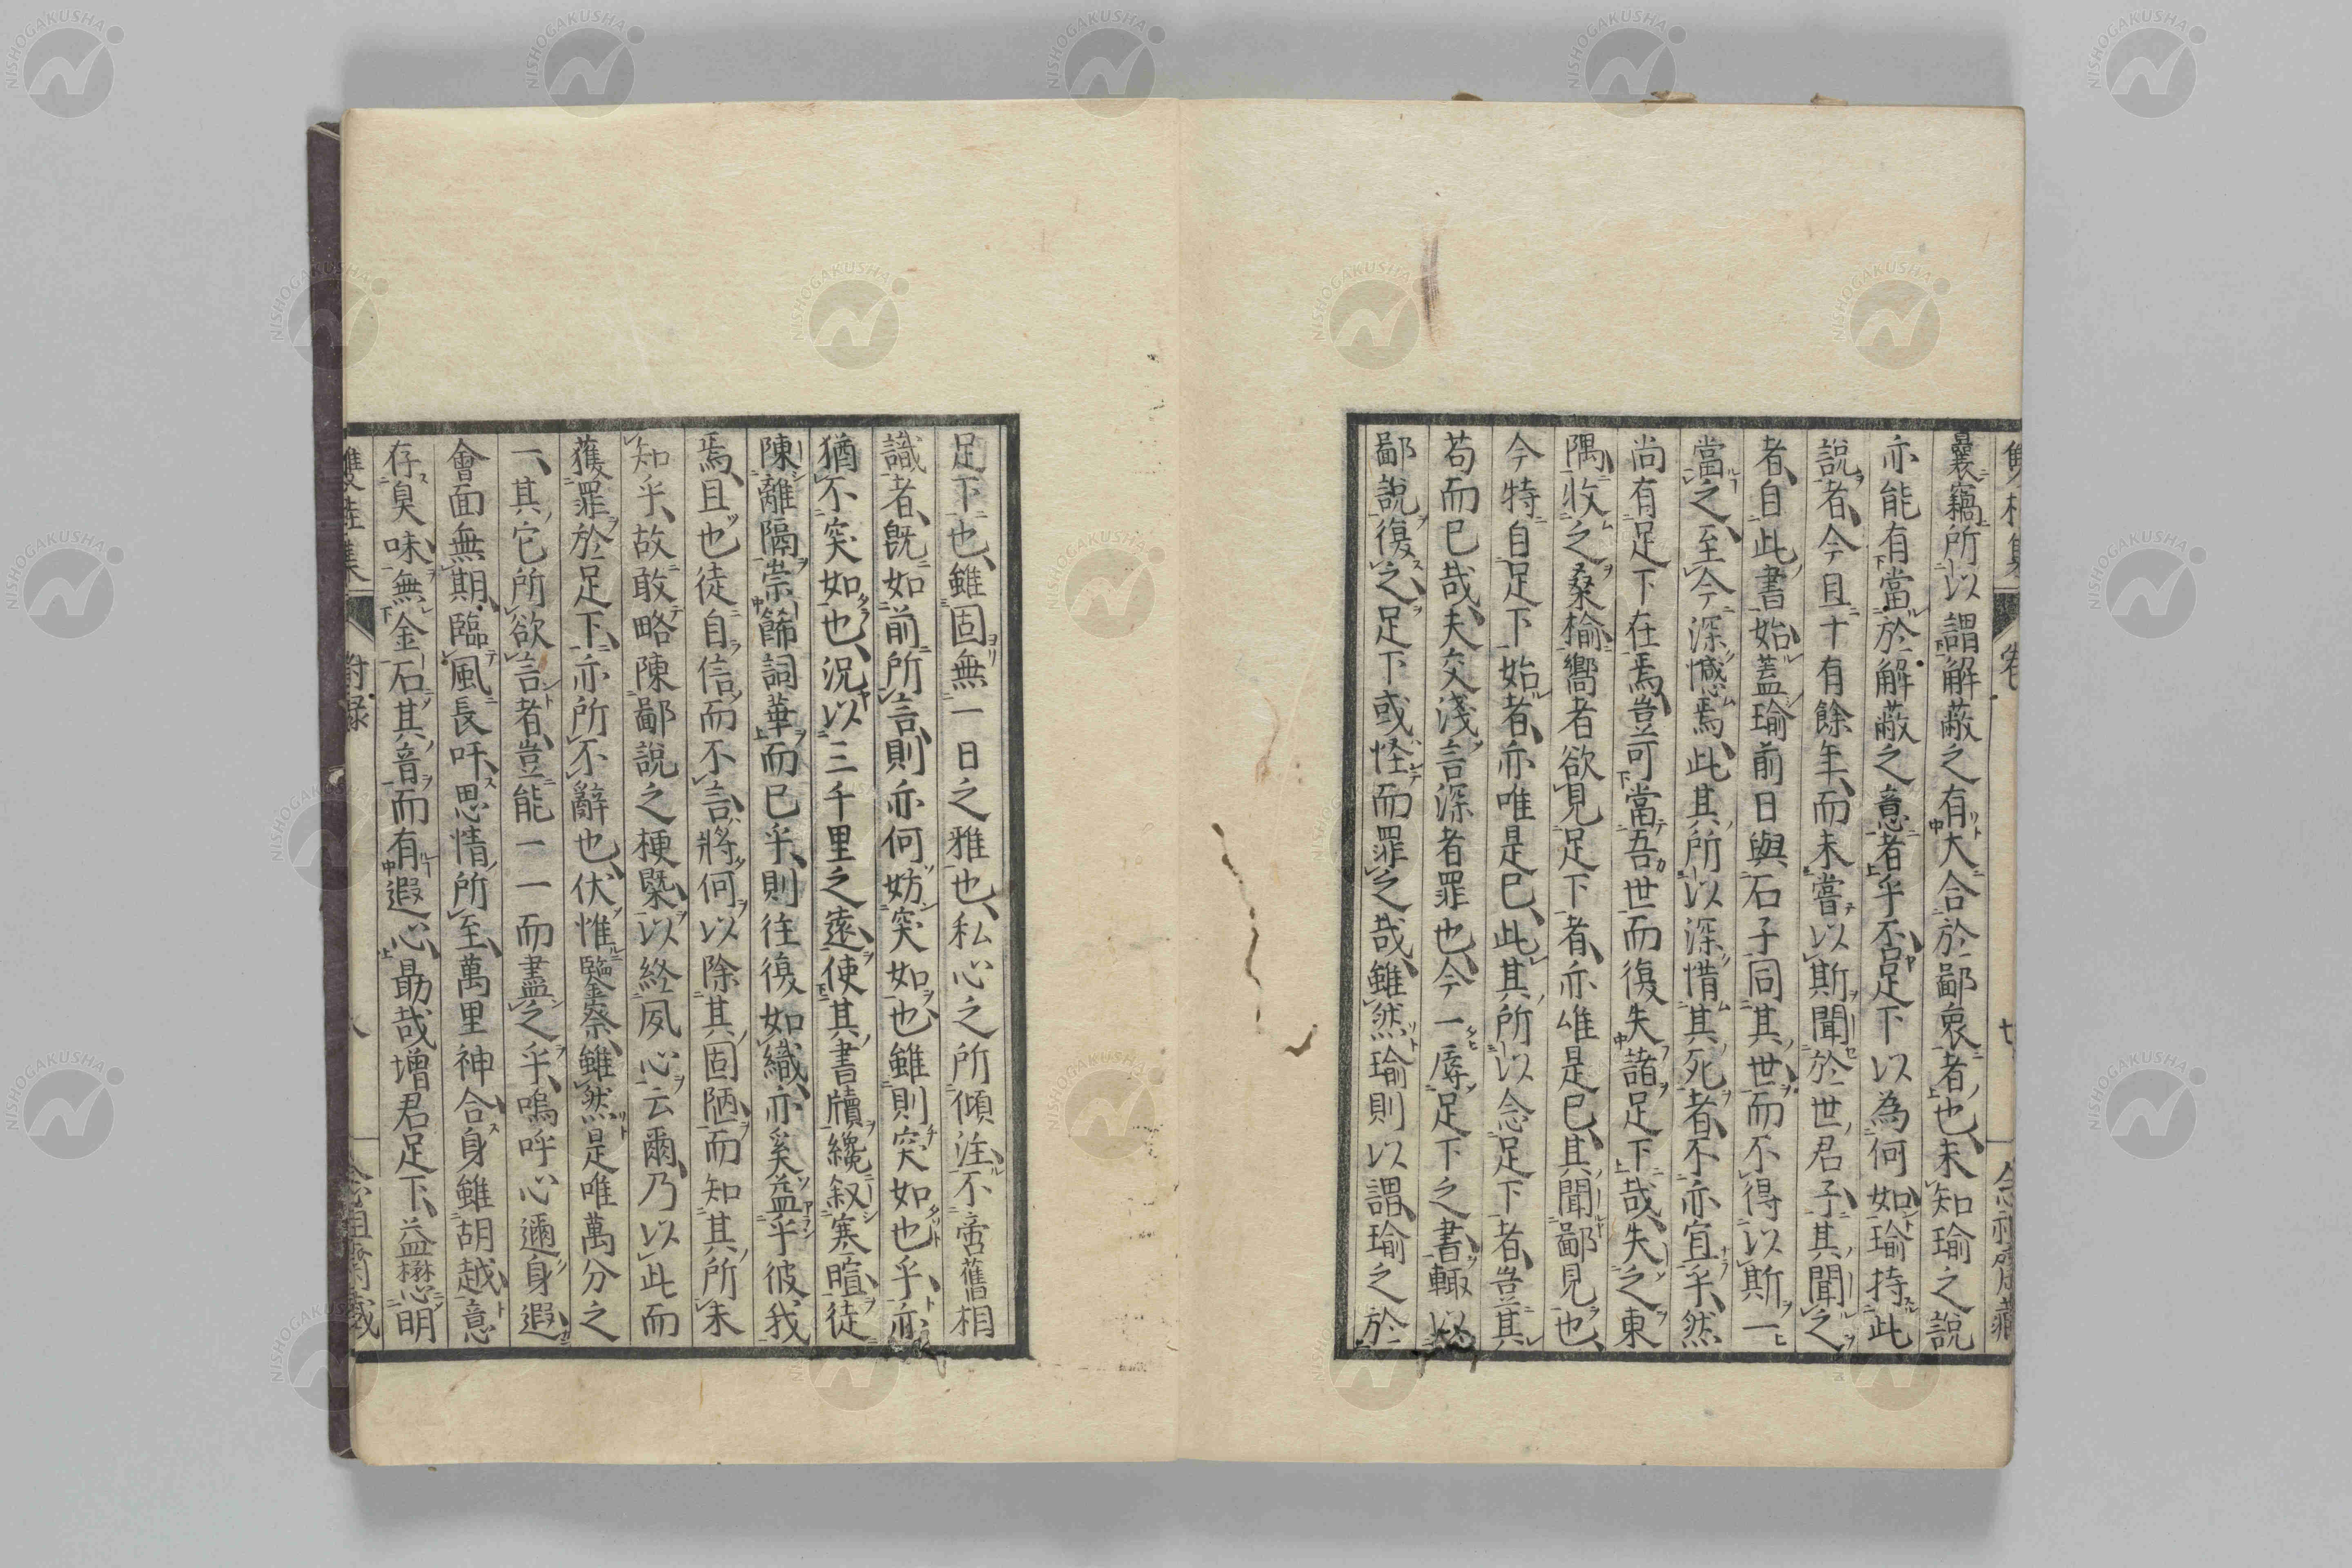 曩竊所以謂解蔽之有大合於鄙衷者也未知瑜之說
亦能有當於解蔽之意者乎不足下以為何如瑜持此
說者今且十有餘年而未嘗以斯聞於世君子其聞之
者自此書始蓋瑜前日與石子同其世而不得以斯一
當之至今深憾焉此其所以深惜其死者不亦宜乎然
尚有足下在焉豈可當吾世而復失諸足下哉失之東
隅收之桑榆嚮者欲見足下者亦唯是已其聞鄙見也
今特自足下始者亦唯是已此其所以念足下者豈其
苟而已哉夫交淺言深者罪也今一辱足下之書輙以
鄙說復之足下或怪而罪之哉雖然瑜則以謂瑜之於
足下也雖固無一日之雅也私心之所傾注不啻舊相
識者既如前所言則亦何妨突如也雖則突如也乎亦
猶不突如也況以三千里之遠使其書牘纔叙寒暄徒
陳離隔崇飾詞華而已乎則往復如織亦奚益乎彼我
焉且也徒自信而不言將何以除其固陋而知其所未
知乎故敢略陳鄙說之梗槩以終夙心云爾乃以此而
獲罪於足下亦所不辭也伏惟鑒察雖然是唯萬分之
一其它所欲言者豈能一一而盡之乎嗚呼心邇身遐
會面無期臨風長吁思情所至萬里神合身雖胡越意
存臭味無金石其音而有遐心勗哉增君足下益懋明
附錄